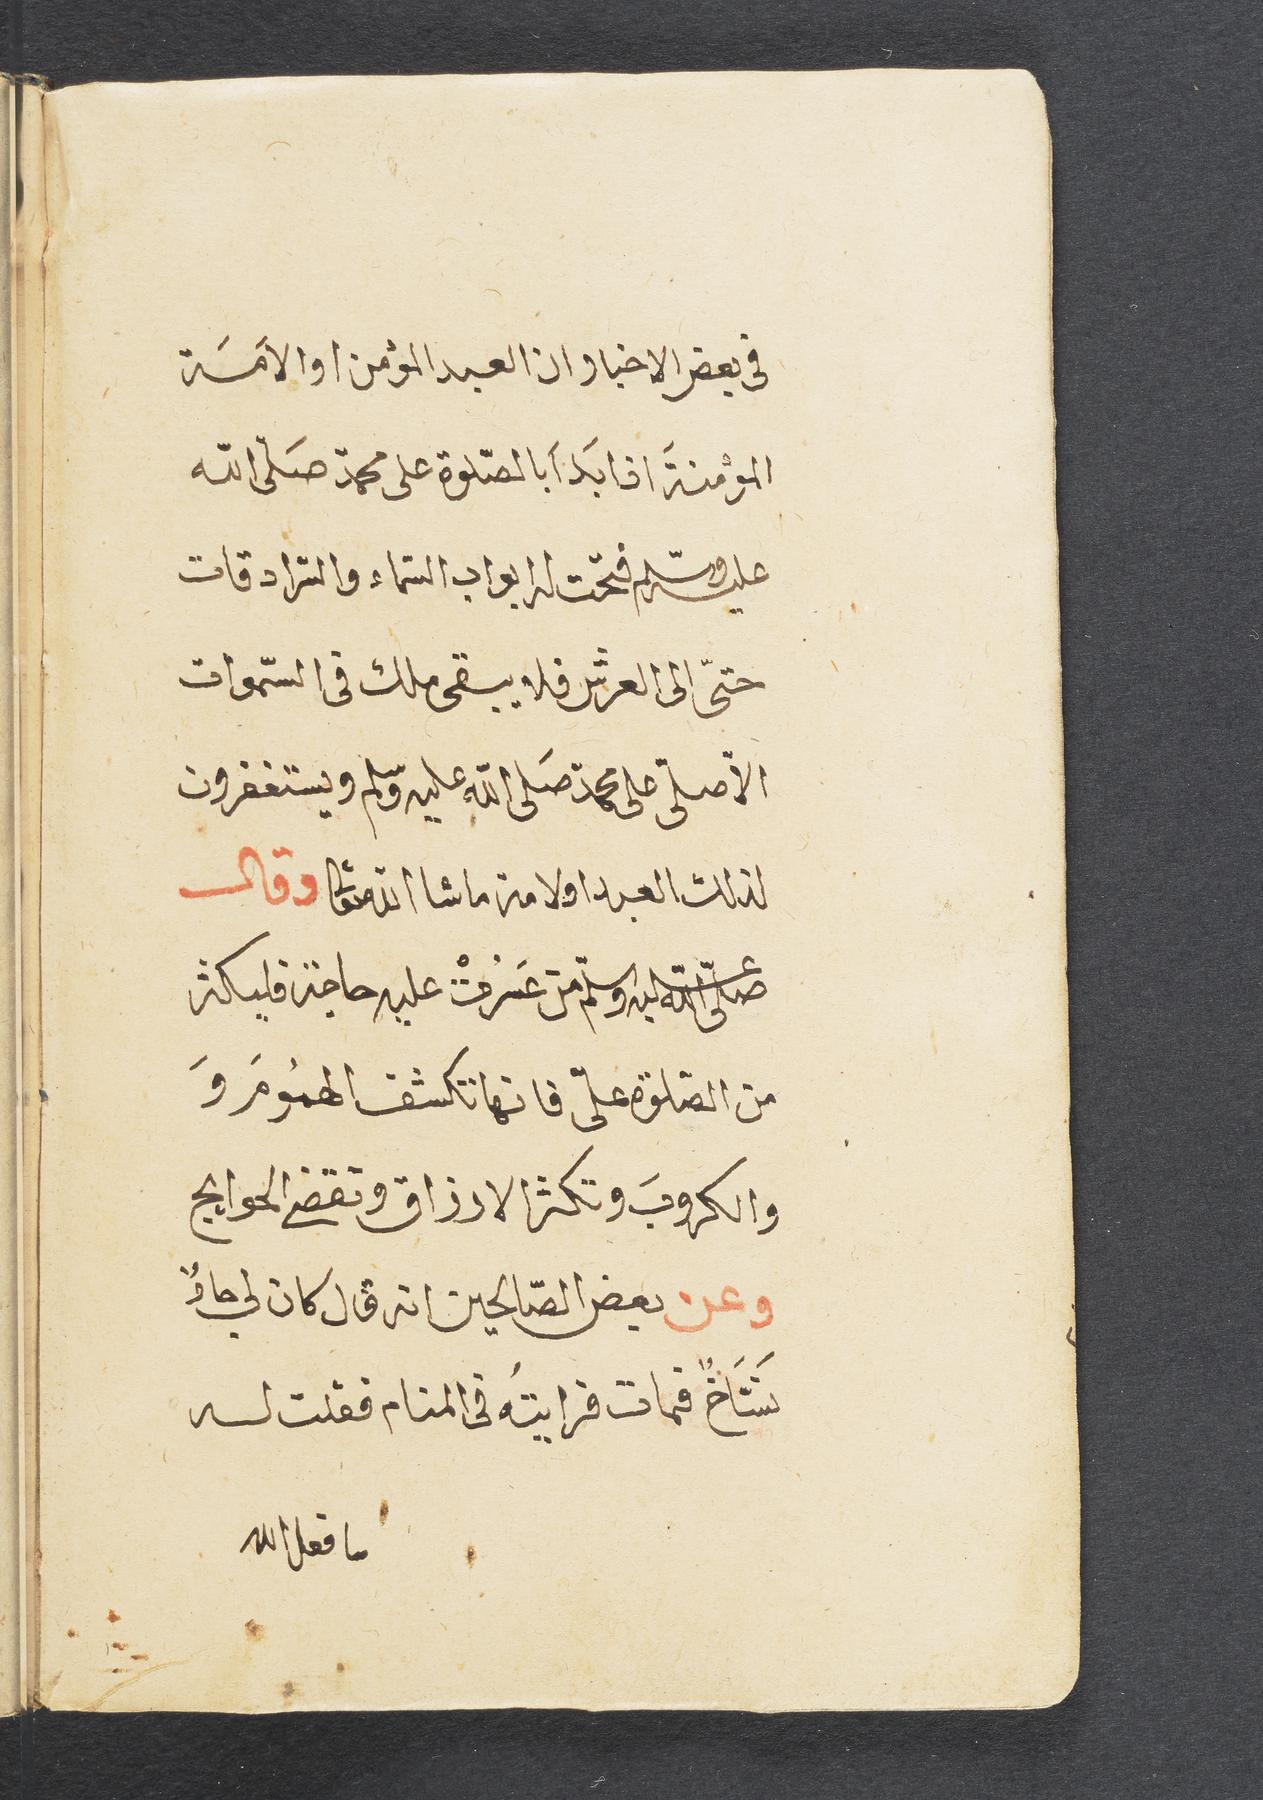 فى بعض الاخبار ان العبد المؤمن او الاَمَسَة
المؤمنةَ اذا بَدَاَ بالصّلوة على محمّد صَلّى اللّه
عليه وسّلم فتحت له ابواب السّماء والسّرادقات
حتىّ الى العرش فلا يبقى ملك فى السّموات
الاّ صلّى على محمّد صَلى اللّه عليه وسّلم ويستغفرون
لذلك العبد او لامة ما شا اللّه وقال
صلّى اللّه عليه وسلّم من عَسُرتْ عليه حاجة فليكثر
من الصّلوة علىّ فانها تكشف الهمُومَ وَ
والكروبَ وتكثر الارزاق وتقضى الحوايج
وعن بعض الصّالحين انه قال كان لى جارٌ
نَسَّاخٌ فمات فرايتُه فى المنام فقلت له
ما فعل الله